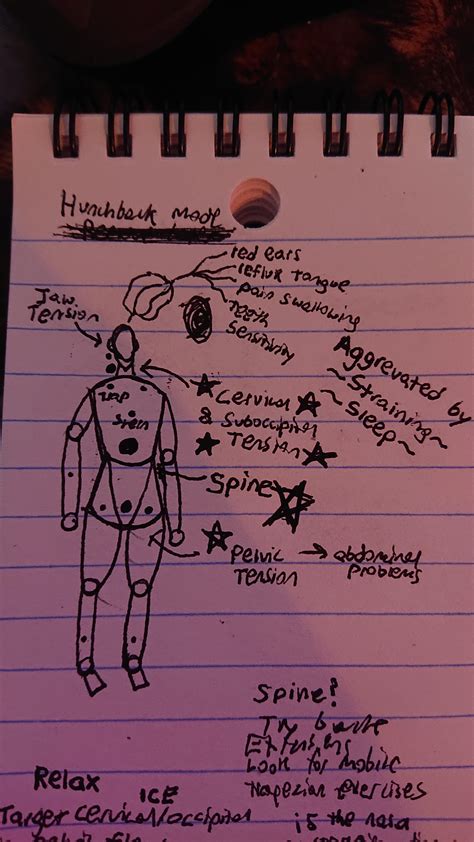 Hunchback Mode
red ears
reflux tongue
pain swallowing
Teeth
Sensitivity
Jaw
Tension
Aggrevated by
~Straining~
~Sleep~
Trap
Cervical
& Suboccipital
Tension
Spine
Pelvic
Tension
→ abdominal
problems
Spine?
Try
Look for mobile
exercises
is the
Relax
ICE
Target cervical/occipital